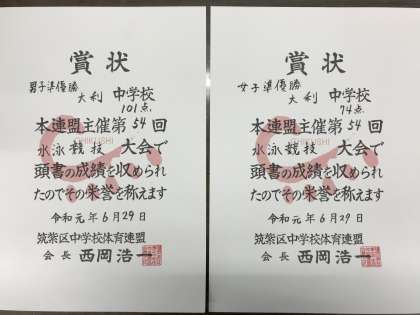 賞状
男子準優勝
大利 中学校
101点
本連盟主催第54回
水泳競技 大会で
頭書の成績を収められ
たのでその栄誉を称えます
令和元年6月29日
筑紫区中学校体育連盟
会長 西岡浩一
賞状
女子準優勝
大利 中学校
74点
本連盟主催第54回
水泳競技 大会で
頭書の成績を収められ
たのでその栄誉を称えます
令和元年6月29日
筑紫区中学校体育連盟
会長 西岡浩一